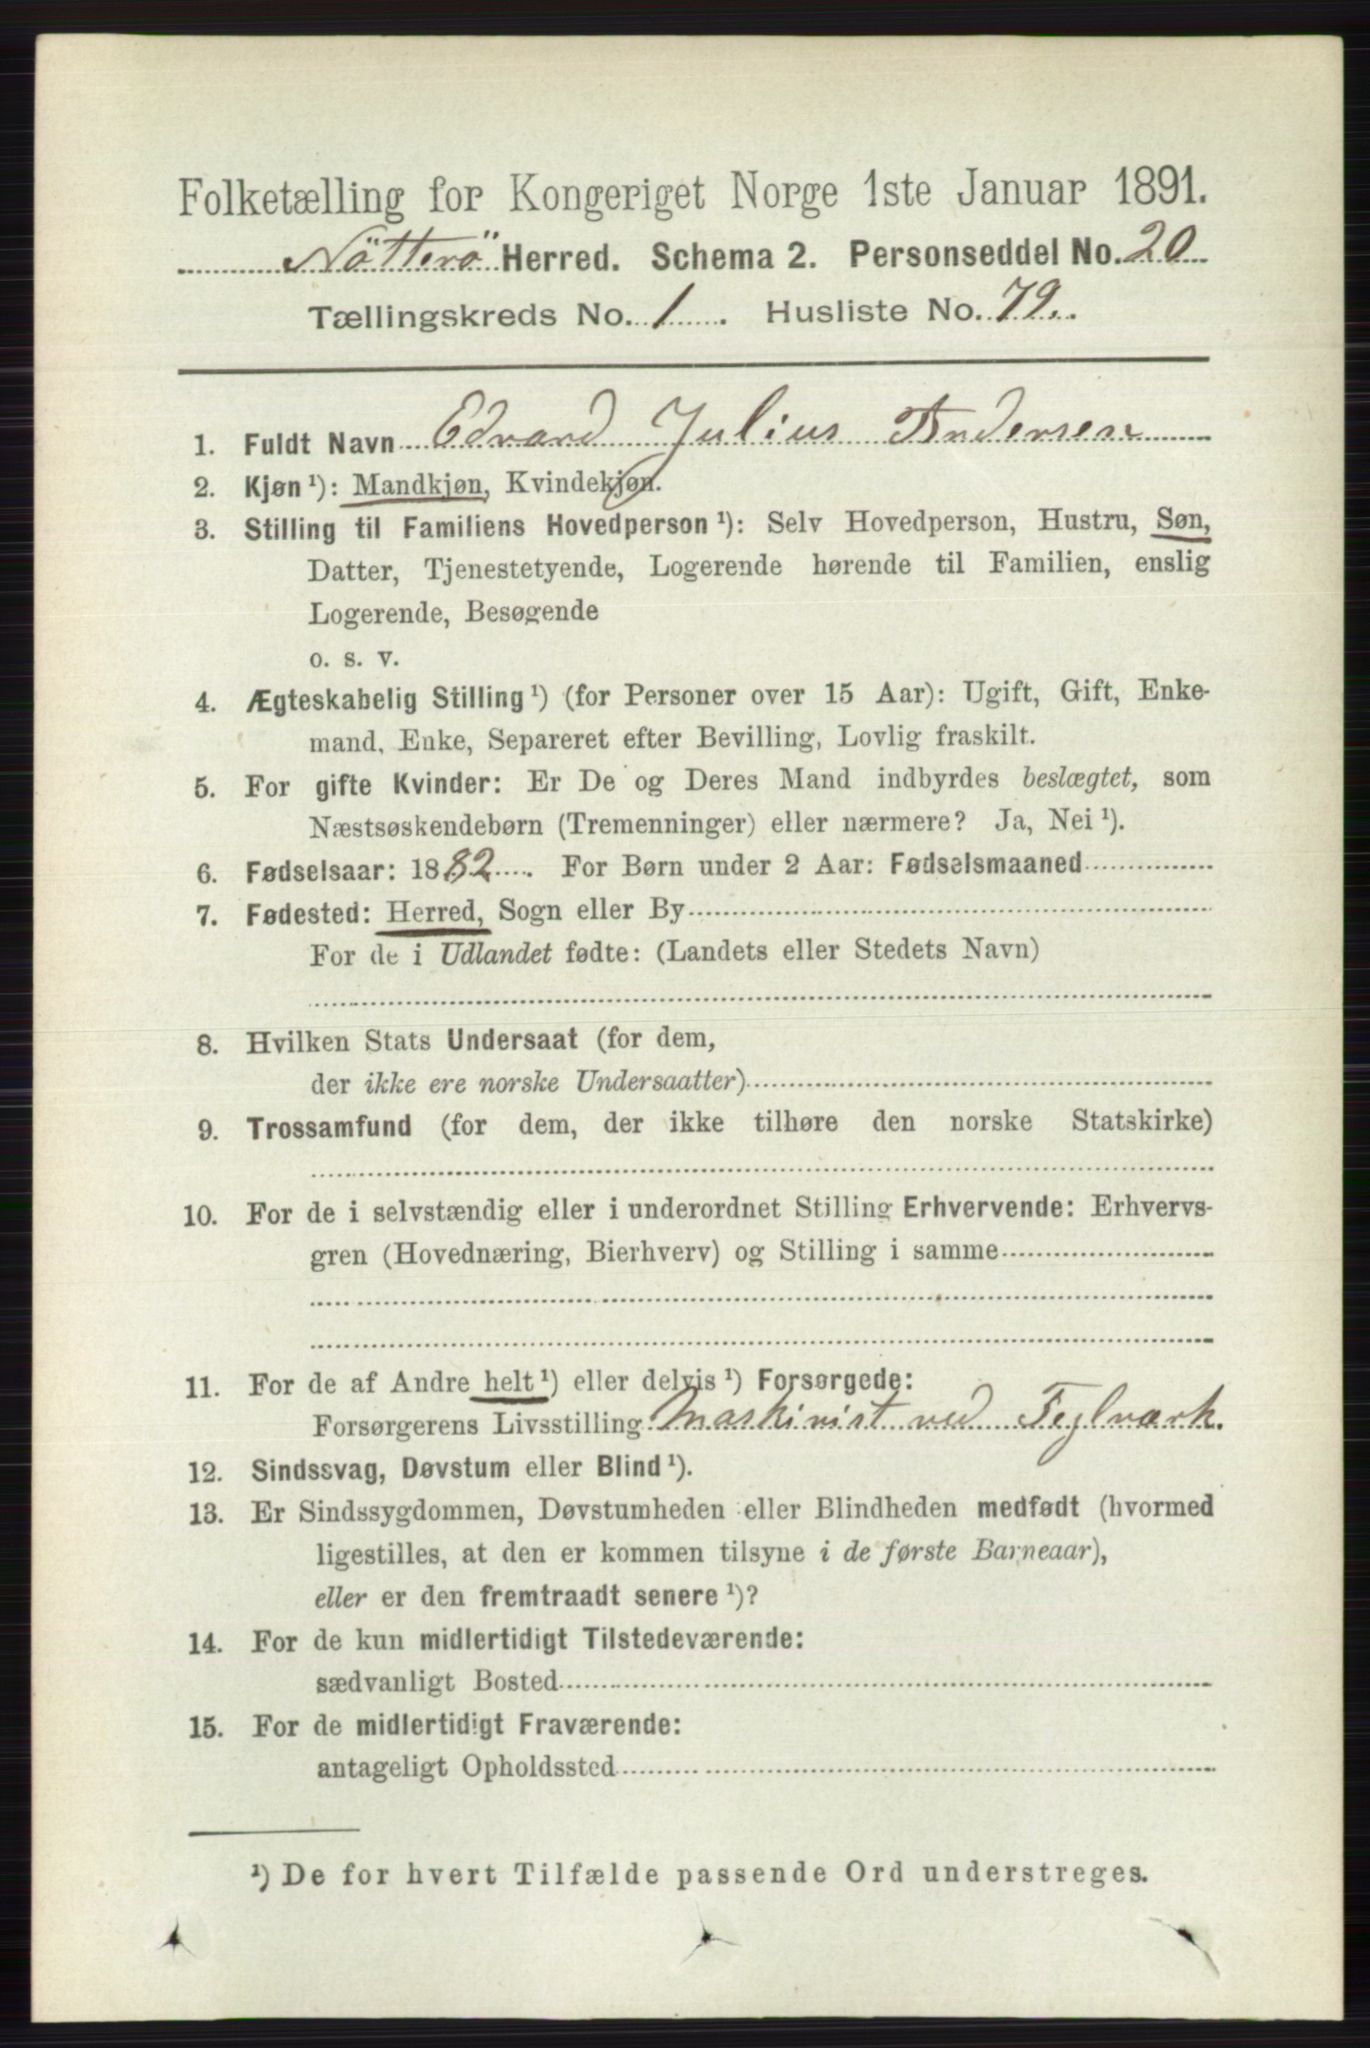 Folketælling for Kongeriget Norge 1ste Januar 1891.
Nötterö Herred. Schema 2. Personseddel No. 20
Tællingskreds No. 1. Husliste No. 79.
1. Fuldt Navn Edvard Julius Andersen
2. Kjøn ¹): Mandkjøn, Kvindekjøn.
3. Stilling til Familiens Hovedperson ¹): Selv Hovedperson, Hustru, Søn,
Datter, Tjenestetyende, Logerende hørende til Familien, enslig
Logerende, Besøgende
o. s. v.
4. Ægteskabelig Stilling ¹) (for Personer over 15 Aar): Ugift, Gift, Enke-
mand, Enke, Separeret efter Bevilling, Lovlig fraskilt.
5. For gifte Kvinder: Er De og Deres Mand indbyrdes beslægtet, som
Næstsøskendebørn (Tremenninger) eller nærmere? Ja, Nei ¹).
6. Fødselsaar: 1882. For Børn under 2 Aar: Fødselsmaaned
7. Fødested: Herred, Sogn eller By
For de i Udlandet fødte: (Landets eller Stedets Navn)
8. Hvilken Stats Undersaat (for dem,
der ikke ere norske Undersaatter)
9. Trossamfund (for dem, der ikke tilhøre den norske Statskirke)
10. For de i selvstændig eller i underordnet Stilling Erhvervende: Erhvervs-
gren (Hovednæring, Bierhverv) og Stilling i samme
11. For de af Andre helt ¹) eller delvis ¹) Forsørgede:
Forsørgerens Livsstilling Maskinist ved Teglværk.
12. Sindssvag, Døvstum eller Blind ¹).
13. Er Sindssygdommen, Døvstumheden eller Blindheden medfødt (hvormed
ligestilles, at den er kommen tilsyne i de første Barneaar),
eller er den fremtraadt senere ¹)?
14. For de kun midlertidigt Tilstedeværende:
sædvanligt Bosted
15. For de midlertidigt Fraværende:
antageligt Opholdssted
¹) De for hvert Tilfælde passende Ord understreges.